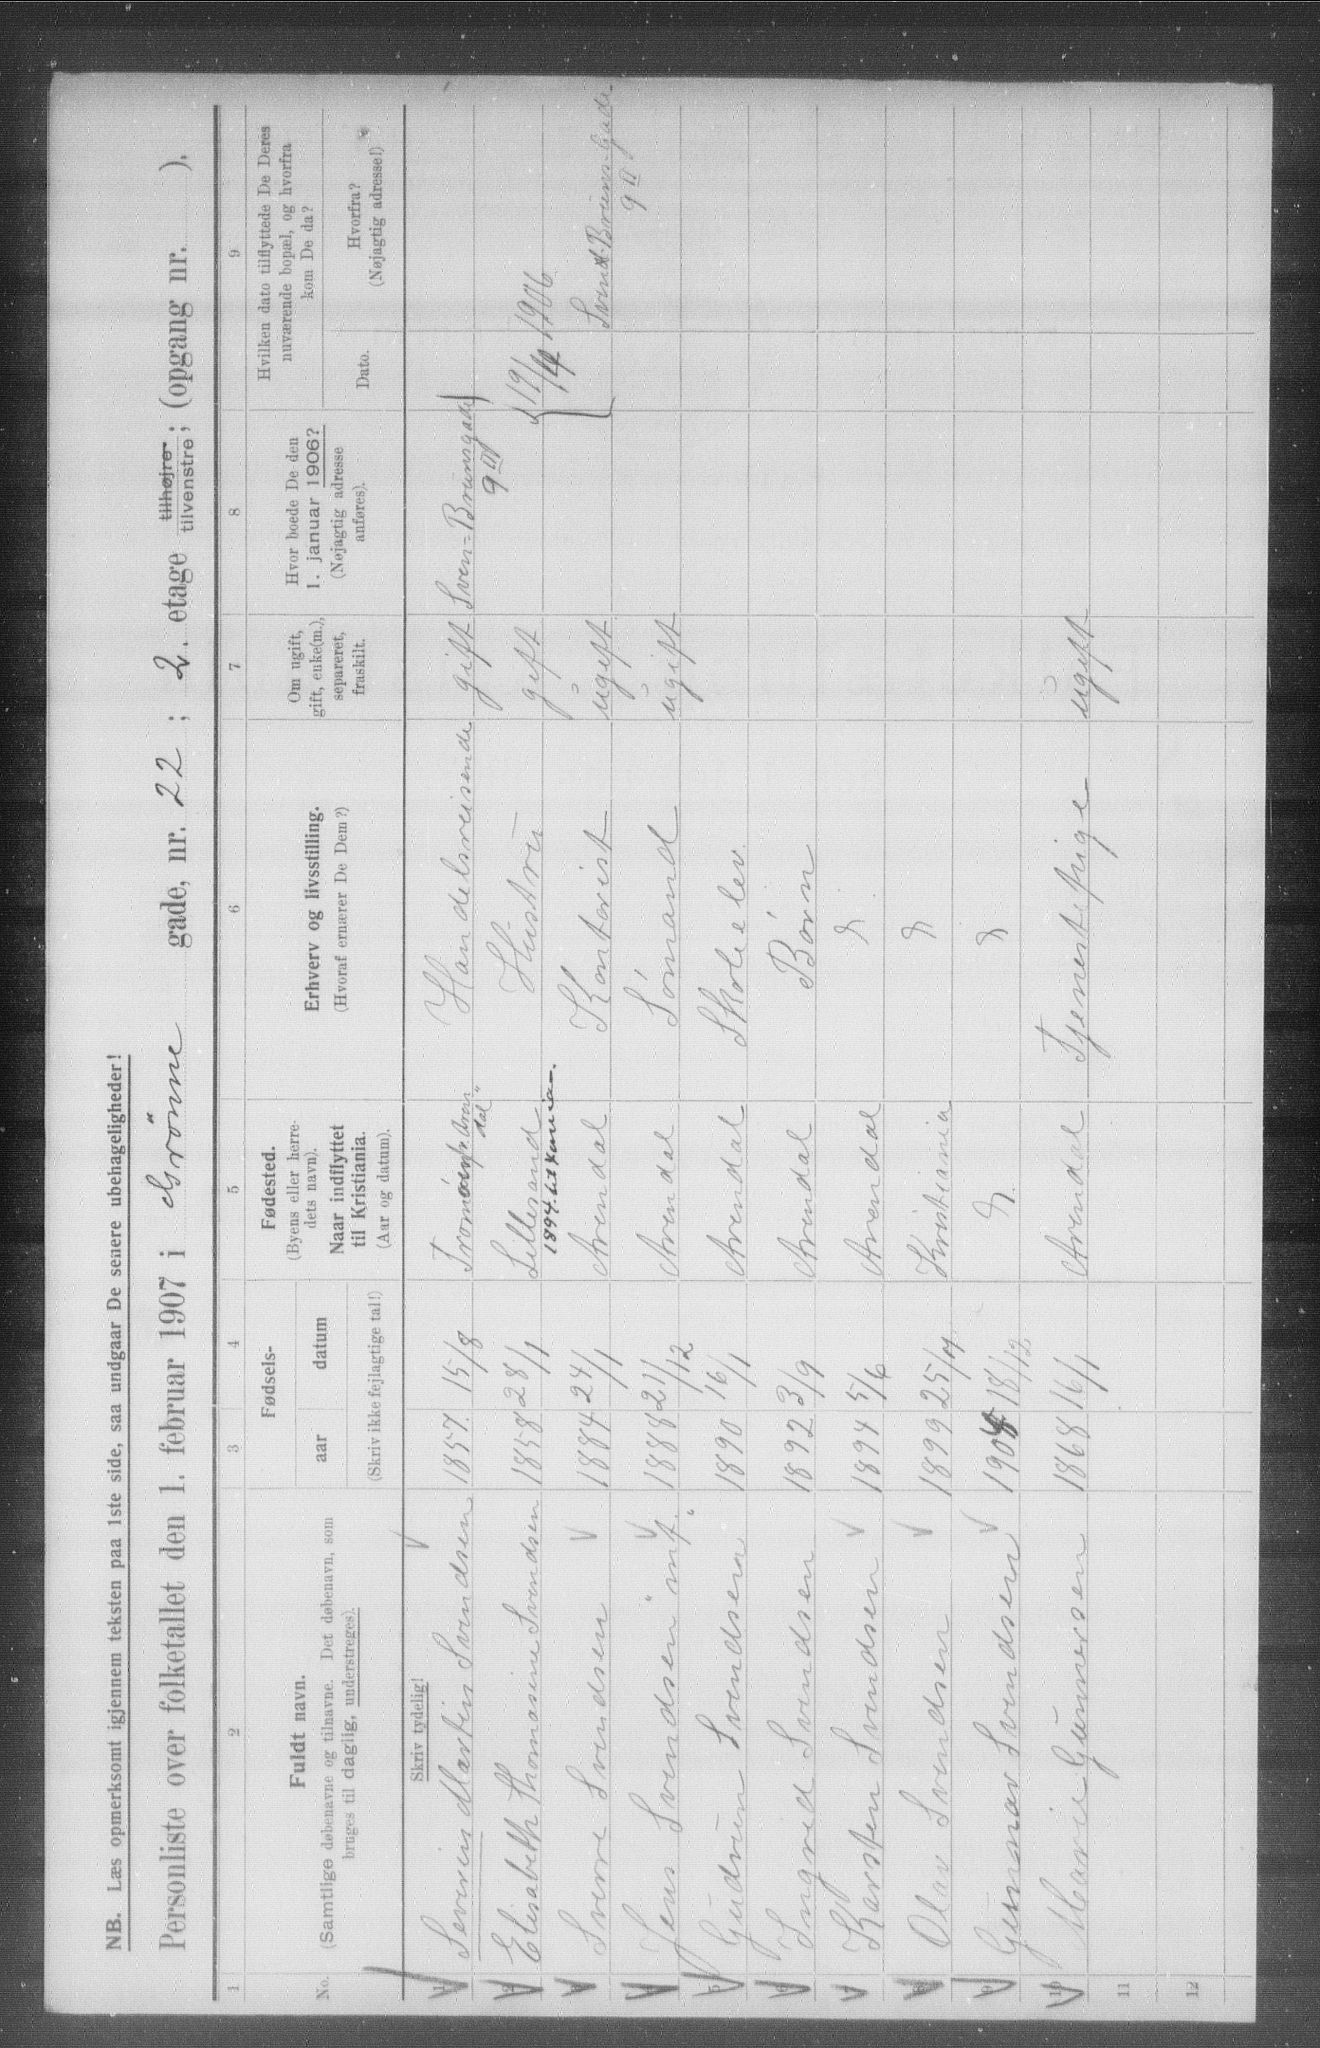 NB. Læs opmerksomt igjennem teksten paa 1ste side, saa undgaar De senere ubehageligheder!
Personliste over folketallet den 1. februar 1907 i Grönne gade, nr. 22; 2. etage tilhøjre tilvenstre; (opgang nr. ).
1 2 3 4 5 6 7 8 9
No.
Fuldt navn.
(Samtlige døbenavne og tilnavne. Det døbenavn, som
bruges til daglig, understreges).
Fødsels-
aar datum
(Skriv ikke fejlagtige tal!)
Fødested.
(Byens eller herre-
dets navn).
Naar indflyttet
til Kristiania.
(Aar og datum).
Erhverv og livsstilling.
(Hvoraf ernærer De Dem?)
Om ugift,
gift, enke(m.),
separeret,
fraskilt.
Hvor boede De den
1. januar 1906?
(Nøjagtig adresse
anføres).
Hvilken dato tilflyttede De Deres
nuværende bopæl, og hvorfra
kom De da?
Dato.
Hvorfra?
(Nøjagtig adresse!)
Skriv tydelig!
1 Severin Martin Svendsen 1857. 15/8 Handelsreisende gift Sven=Brunsgade
9 IV
2 Elisabeth Thomasine Svendsen 1858 28/1 Lillesand Hustru gift
1894 til Kania.
{19/4 1906
Svend Brunsgade
9 IV
3 Sverre Svendsen 1884 24/1 Arendal Kontorist ugift
4 Jens Svendsen "mf." 1888 21/12 Arendal Sömand ugift
5 Gudrun Svendsen 1890 16/1 Arendal Skoleelev
6 Ingrid Svendsen 1892 3/9 Arendal Börn
7 Karsten Svendsen 1894 5/6 Arendal D
8 Olav Svendsen 1899 25/4 Kristiania D
9 Gunnar Svendsen 18/12 D. D
10 Marie Gunnersen 1868 16/1 Arendal Tjenestepige ugift
11
12